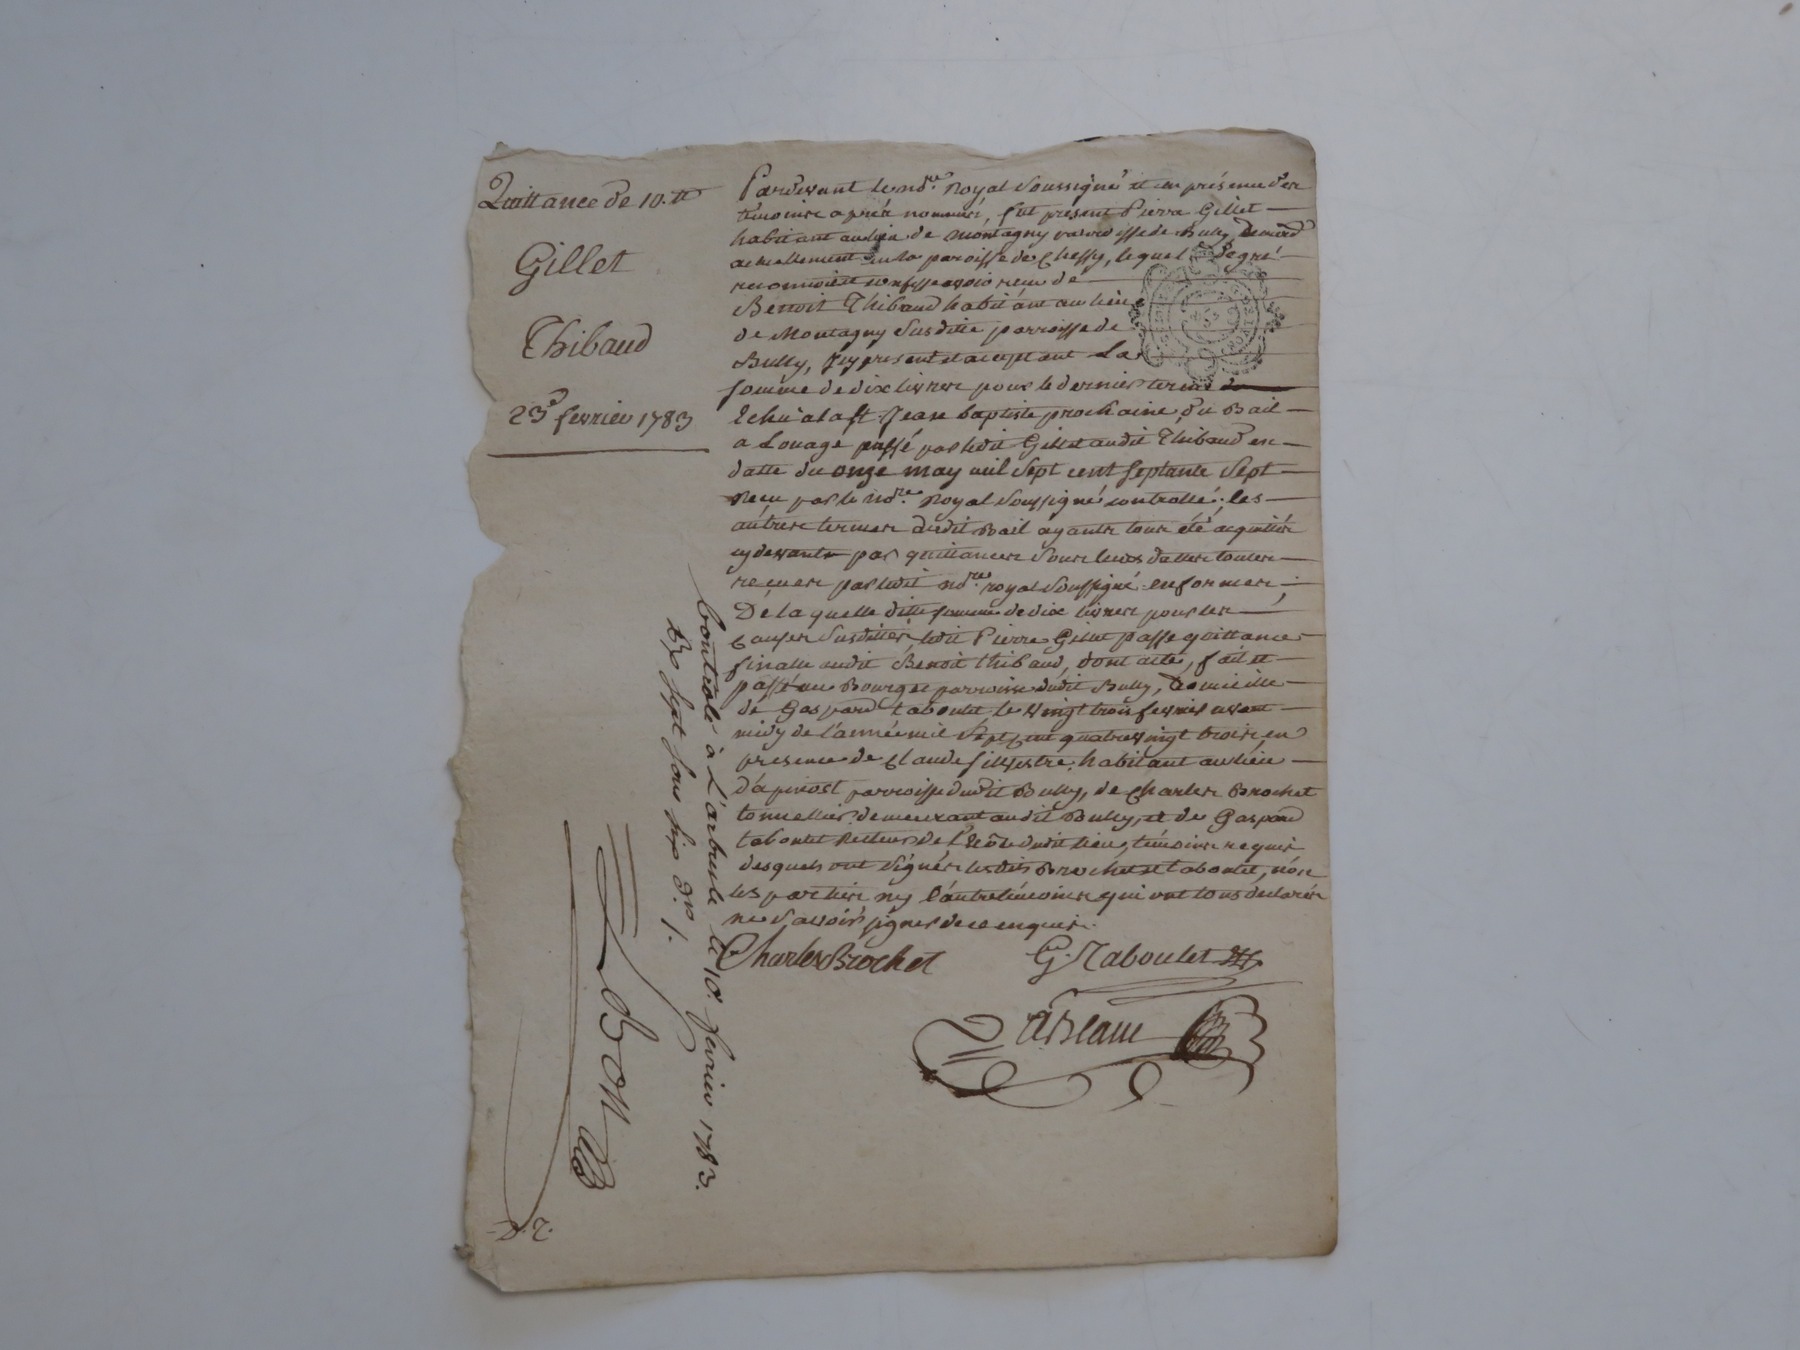 Quittance de 10.tt
Gillet
Thibaud
23e. fevrier 1783
Pardevant le ndre. Royal soussigné et en présence des
témoins après nommés, fut present Pierre Gillet
habitant au lieu de Montagny parroisse de Bully demeurt
actuellement en la paroisse de Chessy, lequel de gré
reconnoit confesse avoir reçu de
Benoit Thibaud habitant au lieu
de Montagny susditte parroisse de
Bully, icy present et aceptant La
somme de dix livres pour le dernier terme
Echu a la st. Jean baptiste prochaine, du Bail
a Louage passé par ledit Gillet audit Thibaud en
datte du onze may mil sept cent septante sept
Recu par le ndre. Royal soussigné controllé; les
autres termes dudit Bail ayants tous été acquittés
cy devants par quittances sous leurs dattes toutes
reçues par ledit ndre. royal soussigné en formes;
De la quelle ditte somme de dix livres pour les
Causes susdittes, ledit Pierre Gillet passe quittance
finalle audit Benoit Thibaud, dont acte, fait et
passé au Bourg et parroisse dudit Bully, Domicille
de Gaspard taboulet le vingt trois fevrier avant
midy de l'année mil sept cent quatrevingt trois en
presence de Claude silvestre, habitant au lieu
d'apinost parroisse dudit Bully, de Charles Brochet
tonnellier demeurant audit Bully, et de Gaspard
taboulet Recteur de l'Ecôle dudit lieu, témoins requis
desquels ont signés lesdits Brochet et taboulet, non
les parties ny l'autre témoins qui ont tous déclarés
ne savoir signer de ce enquis.
Charles Brochet
G. Taboulet
Contrôlé à L'arbresle le 10. fevrier 1783.
Rs sept sous six drs. /.